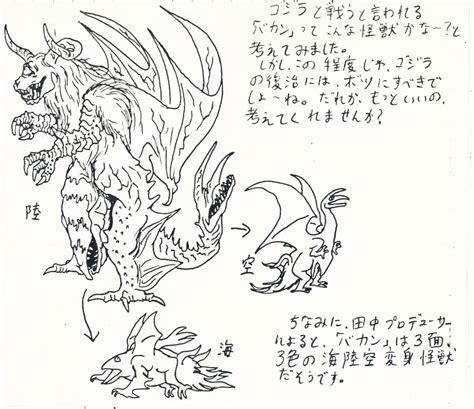 ゴジラと戦うと言われる
「バカン」ってこんな怪獣かな〜?と
考えてみました。
しかし、この程度じゃ、ゴジラ
の後治には、ボツにすべきで
しょ〜ね。だれか、もっといいの、
考えてくれませんか?
陸
空
海
ちなみに、田中プロデューサー
によると、「バカン」は3面、
3色の海陸空変身怪獣
だそうです。